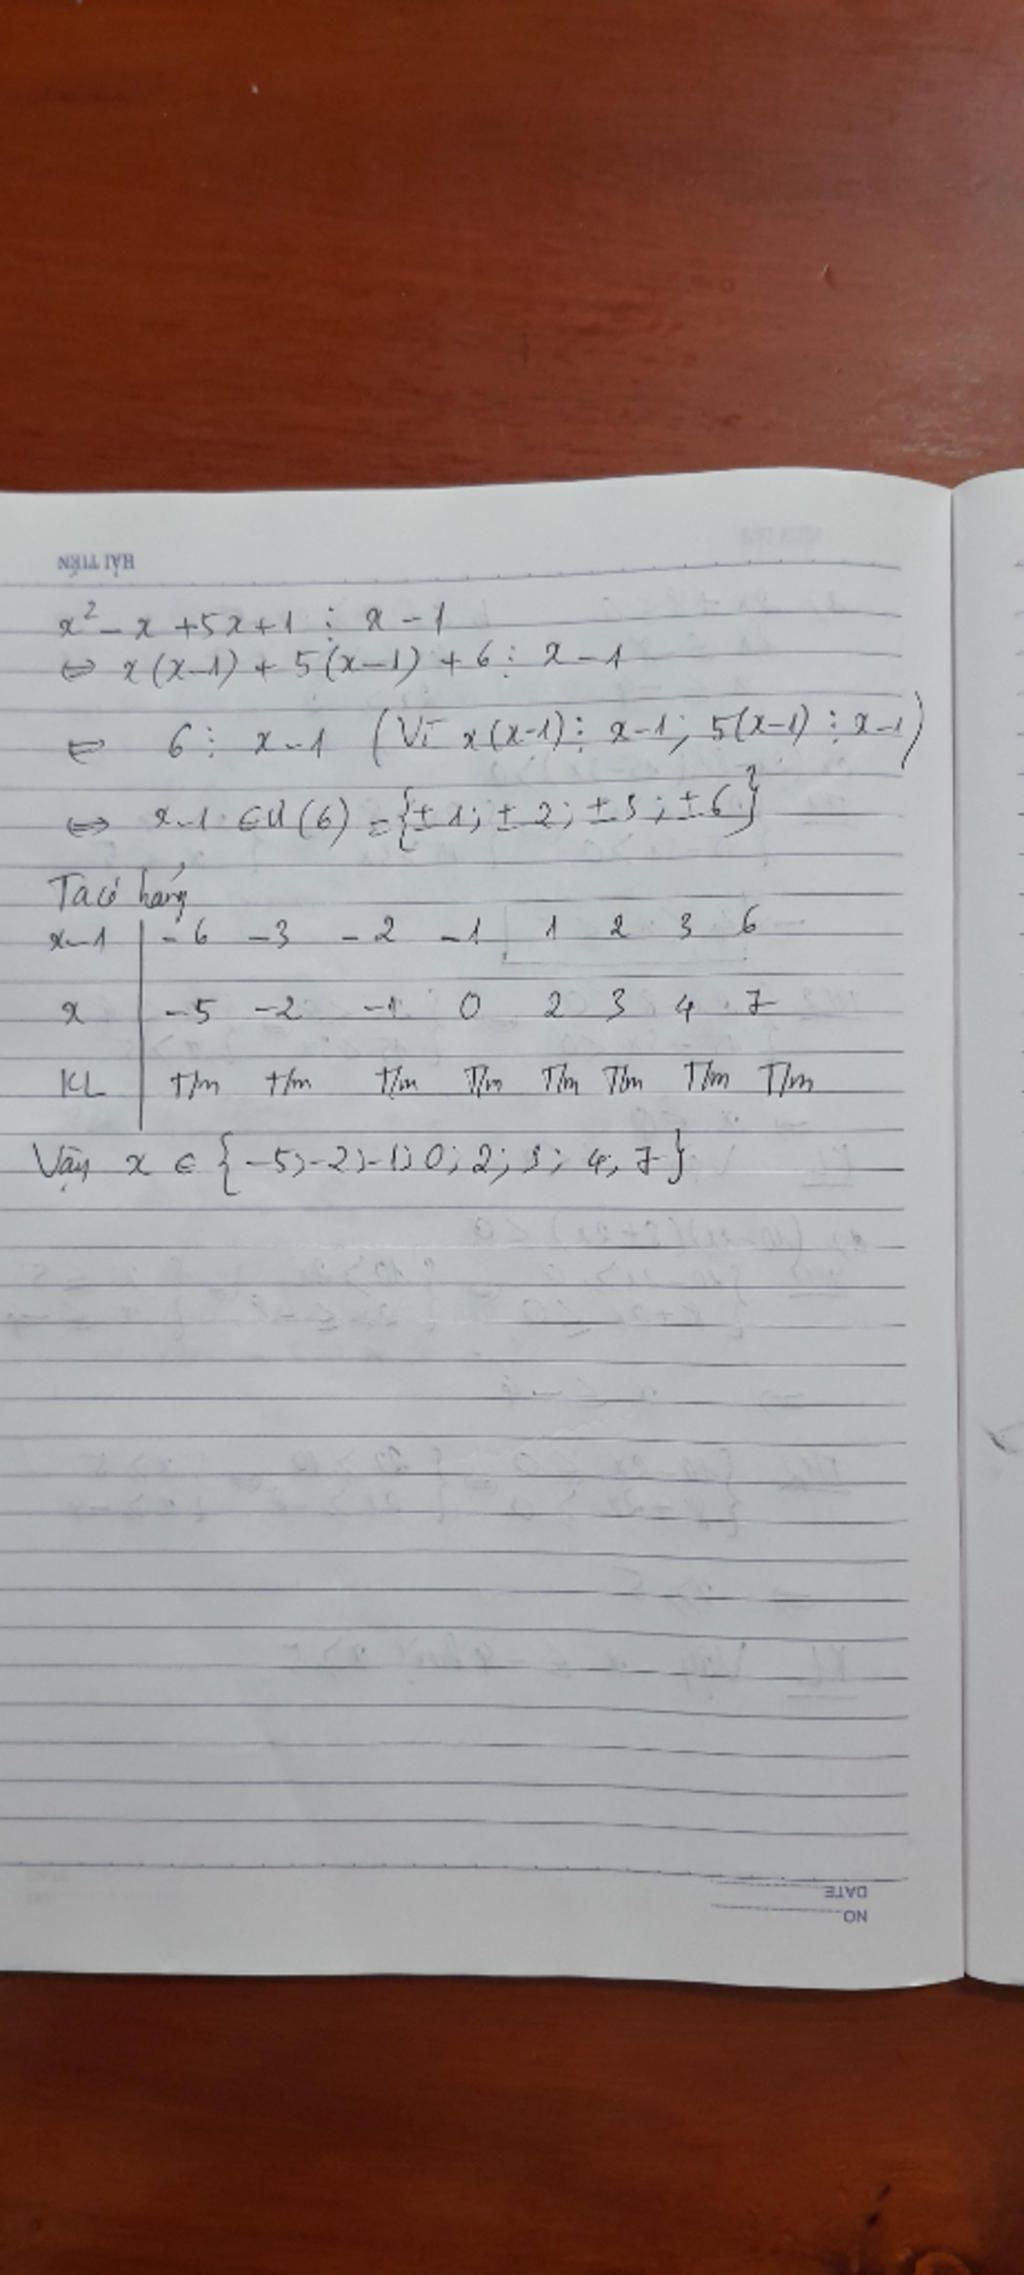 HẢI TIẾN
x² - x + 5x + 1 ⋮ x - 1
⇔ x(x-1) + 5(x-1) + 6 ⋮ x - 1
⇔ 6 ⋮ x - 1 (Vì x(x-1) ⋮ x-1; 5(x-1) ⋮ x-1)
⇔ x-1 ∈ Ư(6) = {±1; ±2; ±3; ±6}
Ta có bảng
x-1 | -6 -3 -2 -1 1 2 3 6
x | -5 -2 -1 0 2 3 4 7
KL | T/m t/m T/m T/m T/m T/m T/m T/m
Vậy x ∈ {-5; -2; -1; 0; 2; 3; 4; 7}
DATE
NO